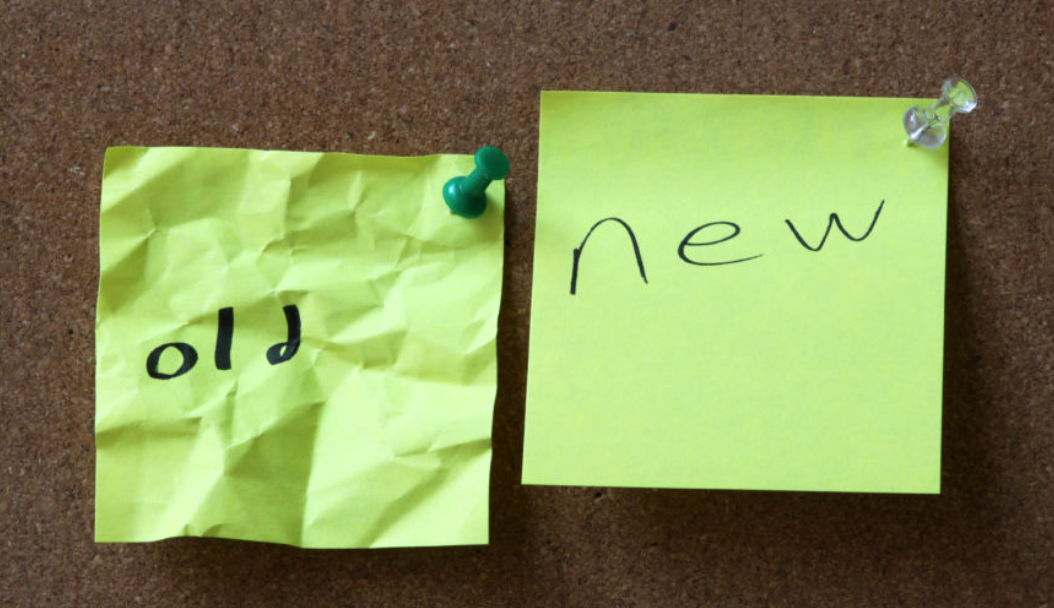 old
new